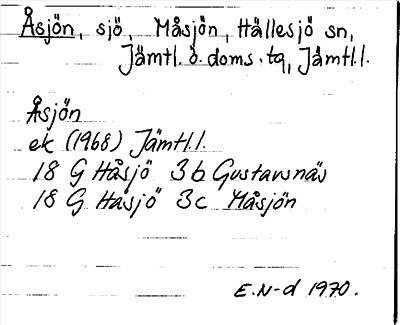 Åsjön, sjö, Måsjön, Hällesjö sn,
Jämtl. ö. doms. tg, Jämtl.l.
Åsjön
ek (1968) Jämtl.l.
18 G Håsjö 3b Gustavsnäs
18 G Håsjö 3c Måsjön
E.N-d 1970.